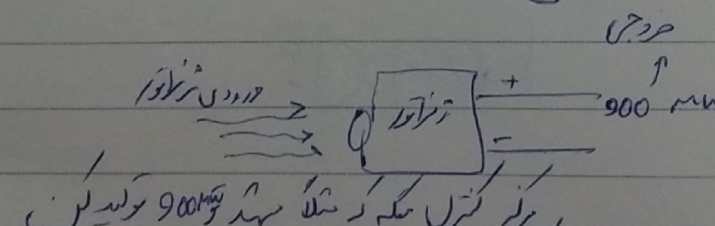 خروجی
↑
ورودی ژنراتور
ژنراتور + - 900 MW
مرکز کنترل میگه که مثلاً سهند تو 900MW تولید کن